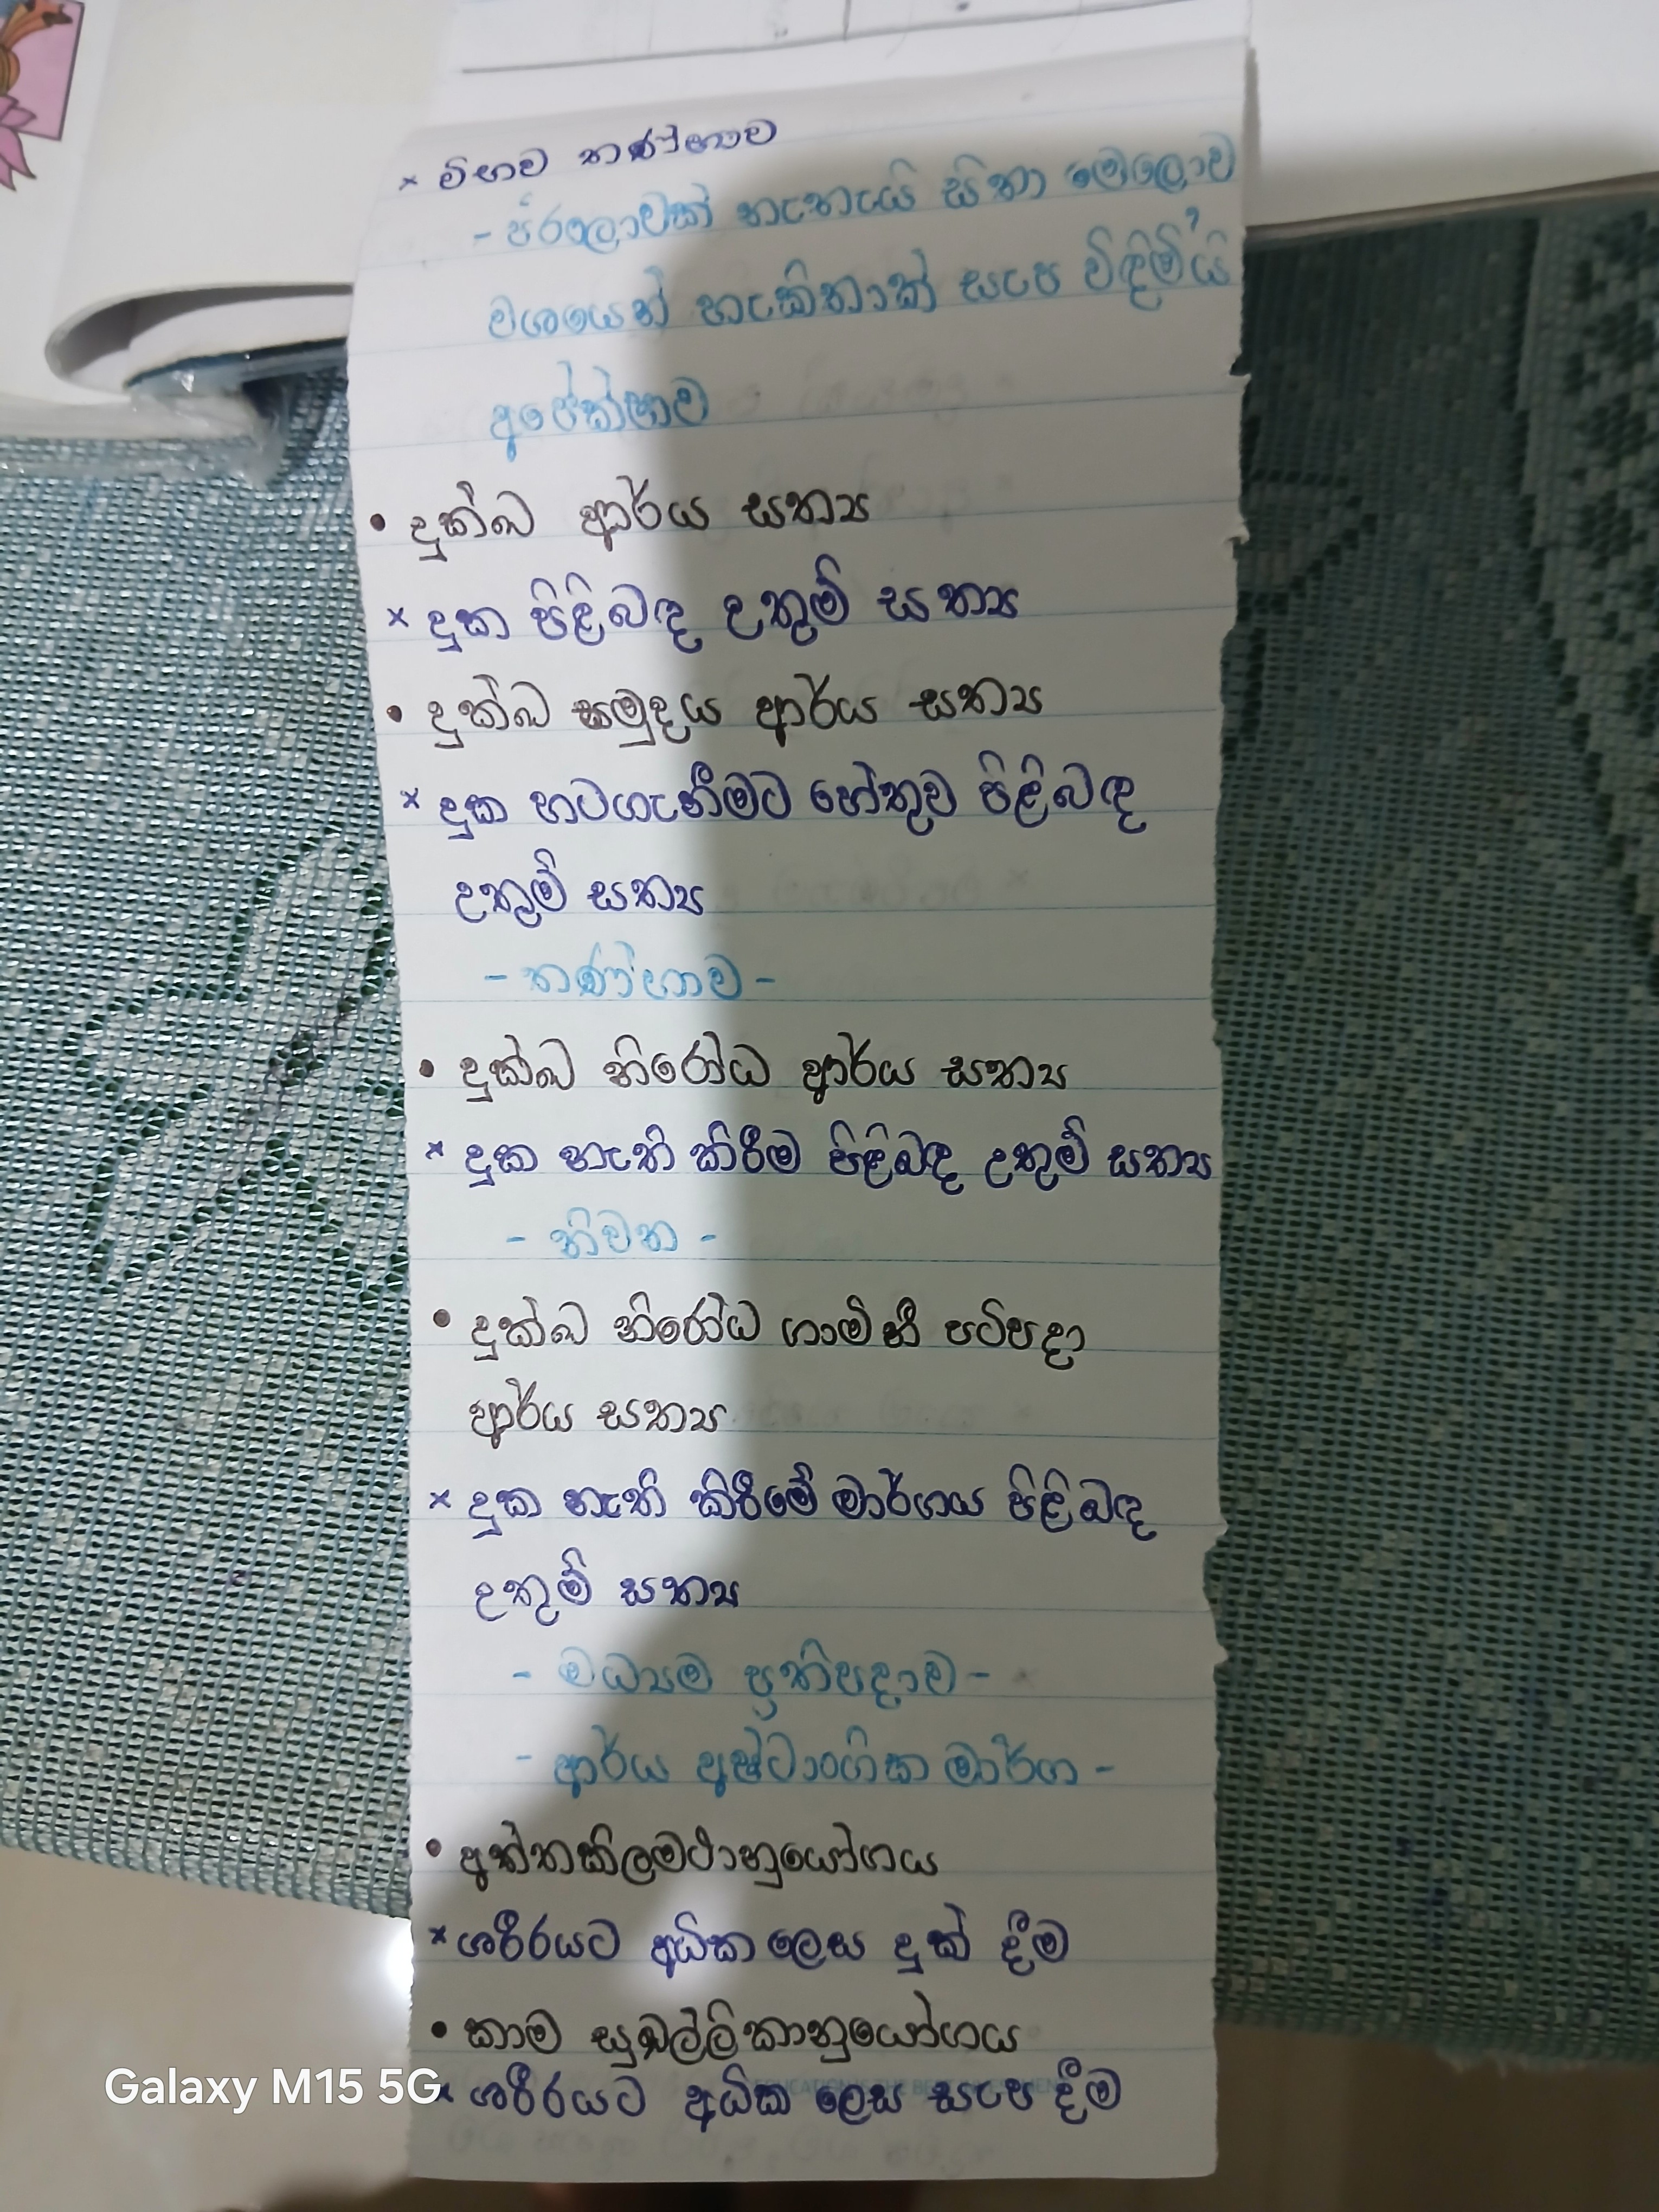 × විභව තණ්හාව
- පරලොවක් නැතැයි සිතා මෙලොව
වශයෙන් හැකිතාක් සැප විඳීමෙයි
අපේක්ෂාව
• දුක්ඛ ආර්ය සත්‍ය
× දුක පිළිබඳ උතුම් සත්‍ය
• දුක්ඛ සමුදය ආර්ය සත්‍ය
× දුක හටගැනීමට හේතුව පිළිබඳ
උතුම් සත්‍ය
- තණ්හාව -
• දුක්ඛ නිරෝධ ආර්ය සත්‍ය
× දුක නැති කිරීම පිළිබඳ උතුම් සත්‍ය
- නිවන -
• දුක්ඛ නිරෝධ ගාමිනී පටිපදා
ආර්ය සත්‍ය
× දුක නැති කිරීමේ මාර්ගය පිළිබඳ
උතුම් සත්‍ය
- මධ්‍යම ප්‍රතිපදාව -
- ආර්ය අෂ්ටාංගික මාර්ග -
• අත්තකිලමථානුයෝගය
× ශරීරයට අධික ලෙස දුක් දීම
• කාම සුඛල්ලිකානුයෝගය
× ශරීරයට අධික ලෙස සැප දීම
Galaxy M15 5G